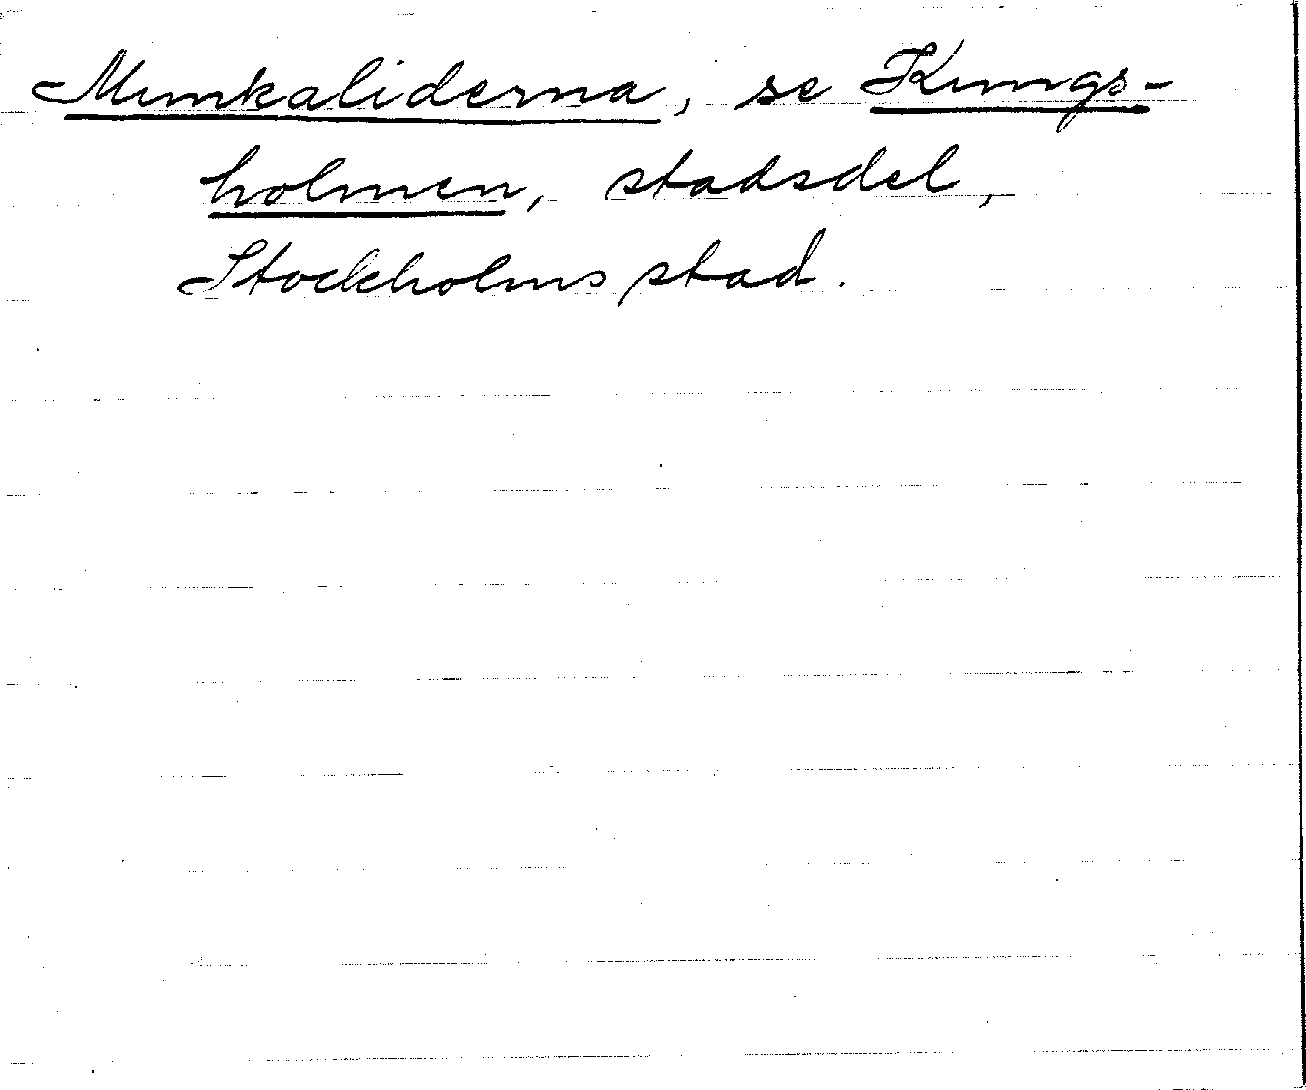 Munkaliderna, se Kungs-
holmen, stadsdel,
Stockholms stad.